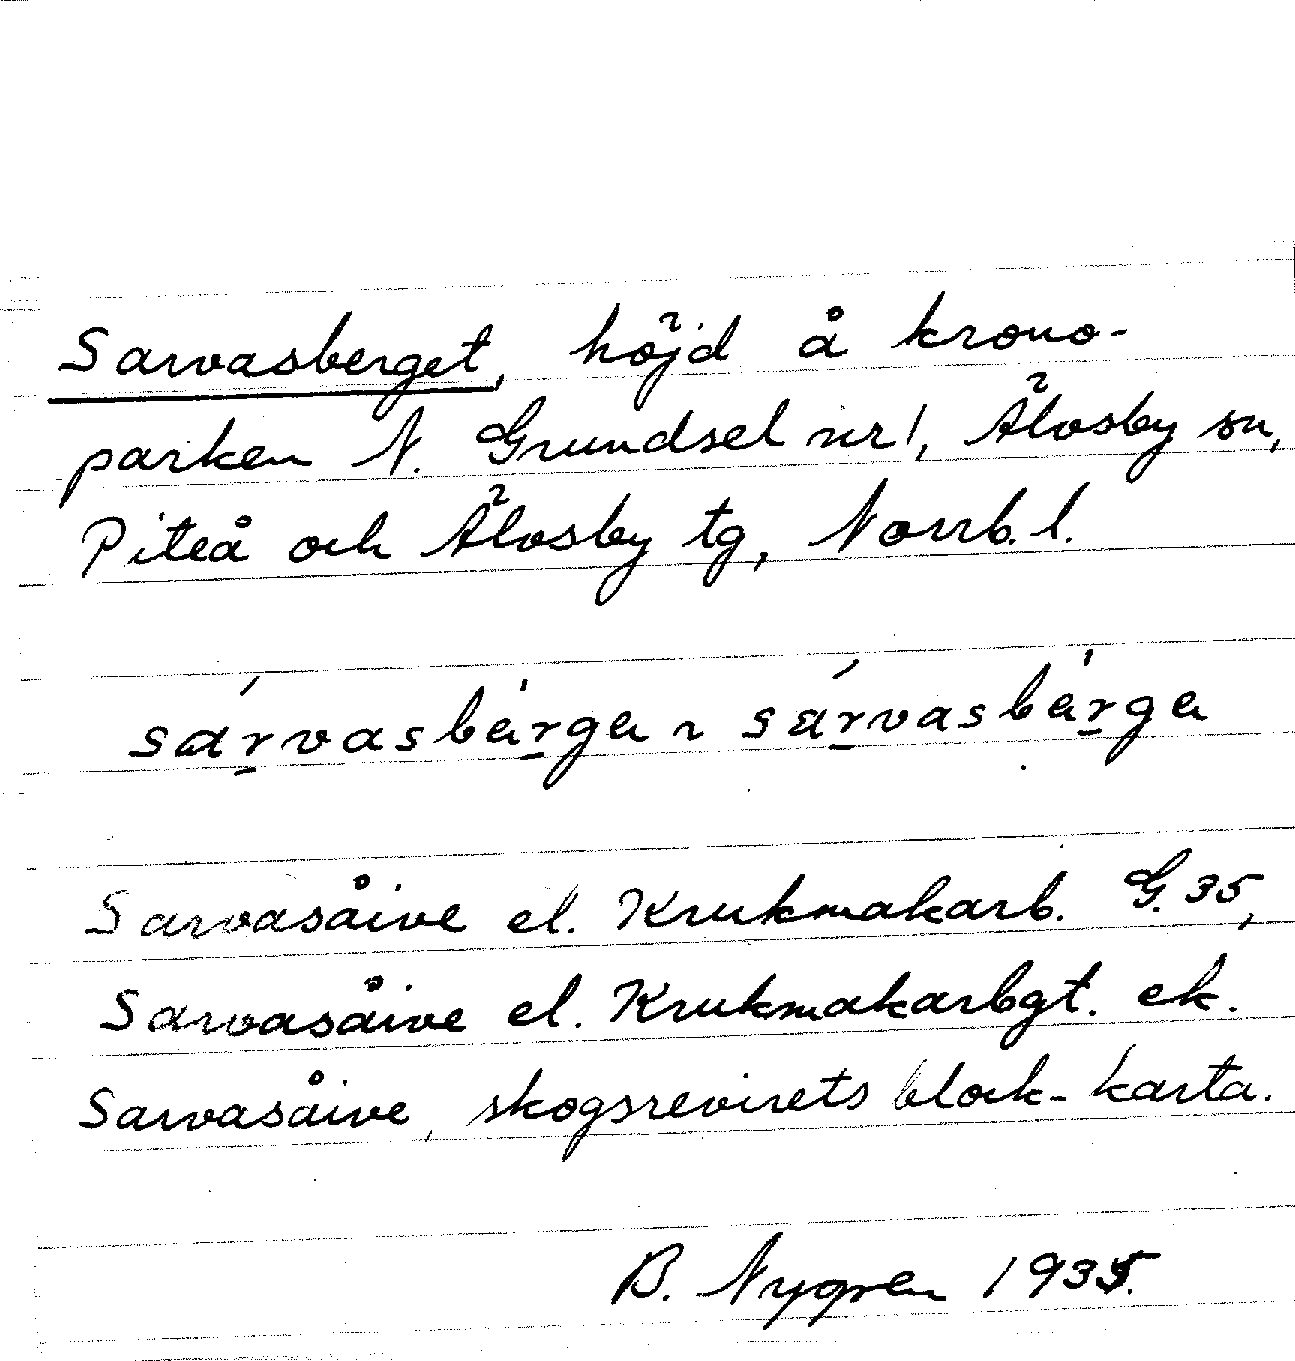 Sarvasberget, höjd å krono-
parken N. Grundsel nr 1, Älvsby sn,
Piteå och Älvsby tg, Norrb. l.
sárvasbèrga ~ sárvasbèrga
Sarvasåive el. Krukmakarb. G. 35,
Sarvasåive el. Krukmakarbgt. ek.
Sarvasåive, skogsrevirets block-karta.
B. Nygren 1935.